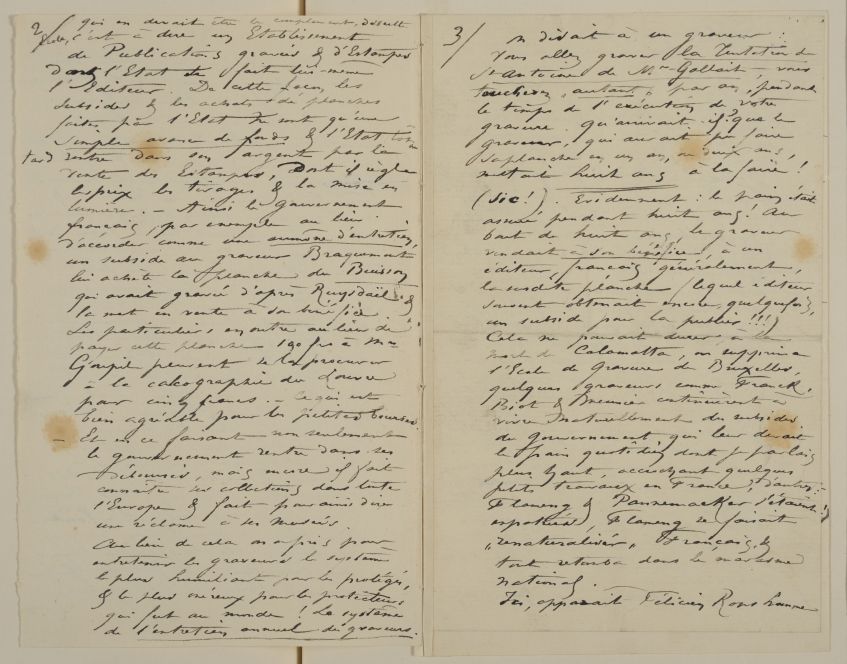 2/ qui en devait être le complément,
c'est à dire un Etablissement
de Publications gravées & d'Estampes
dont l'Etat se fait lui-même
l'Editeur. De cette façon les
subsides & les achats de planches
faites par l'Etat ne sont qu'une
simple avance de fonds & l'Etat tôt ou
tard rentre dans son argent par la
vente des Estampes, dont il règle
les prix les tirages & la mise en
lumière. — Ainsi le gouvernement
français, par exemple au lieu
d'accorder comme une aumône d'entretien,
un subside au graveur Bracquemont
lui achète la planche du Buisson
qui avait gravée d'après Ruysdaël &
la met en vente à son bénéfice.
Les particuliers en outre au lieu de
payer cette planche 190 frs à Mr
Goupil peuvent se la procurer
à la calcographie du Louvre
pour cinq francs. — Ce qui est
bien agréable pour les petites bourses.
— Et en ce faisant non seulement
le gouvernement rentre dans ses
déboursés, mais encore il fait
connaître ses collections dans toute
l'Europe & fait pour ainsi dire
une réclame à ses Musées.
Au lieu de cela on a pris pour
entretenir les graveurs le système
le plus humiliant pour les protégés,
& le plus onéreux pour les protecteurs
qui fut au monde ! Le système
de l'entretien annuel du graveurs.
3/ On disait à un graveur :
Vous allez graver la Tentation de
St Antoine de Mr Gallait, vous
toucherez "autant" par an, pendant
le temps de l'exécution de votre
gravure. Qu'arrivait-il ? que le
graveur, qui aurait pu faire
sa planche en un an, ou deux ans,
mettait huit ans à la faire !
(Sic !). Evidemment : le pain était
assuré pendant huit ans ! Au
bout de huit ans, le graveur
vendait à son bénéfice, à un
éditeur, français généralement,
la susdite planche (lequel éditeur
souvent obtenait encore, quelquefois,
un subside pour la publier !!!)
Cela ne pouvait durer, à la
mort de Calamatta, on supprima
l'Ecole de Gravure de Bruxelles,
quelques graveurs comme Franck,
Biot & Meunier continuèrent à
vivre maternellement des subsides
du gouvernement, qui leur devait
le pain quotidien dont je parlais
plus haut, accrochant quelques
petits travaux en France, d'autres :
Flameng & Pannemacker s'étaient
expatriés, Flameng se faisait
"renaturaliser" Français, &
tout retomba dans le marasme
national.
Ici, apparait Félicien Rops homme